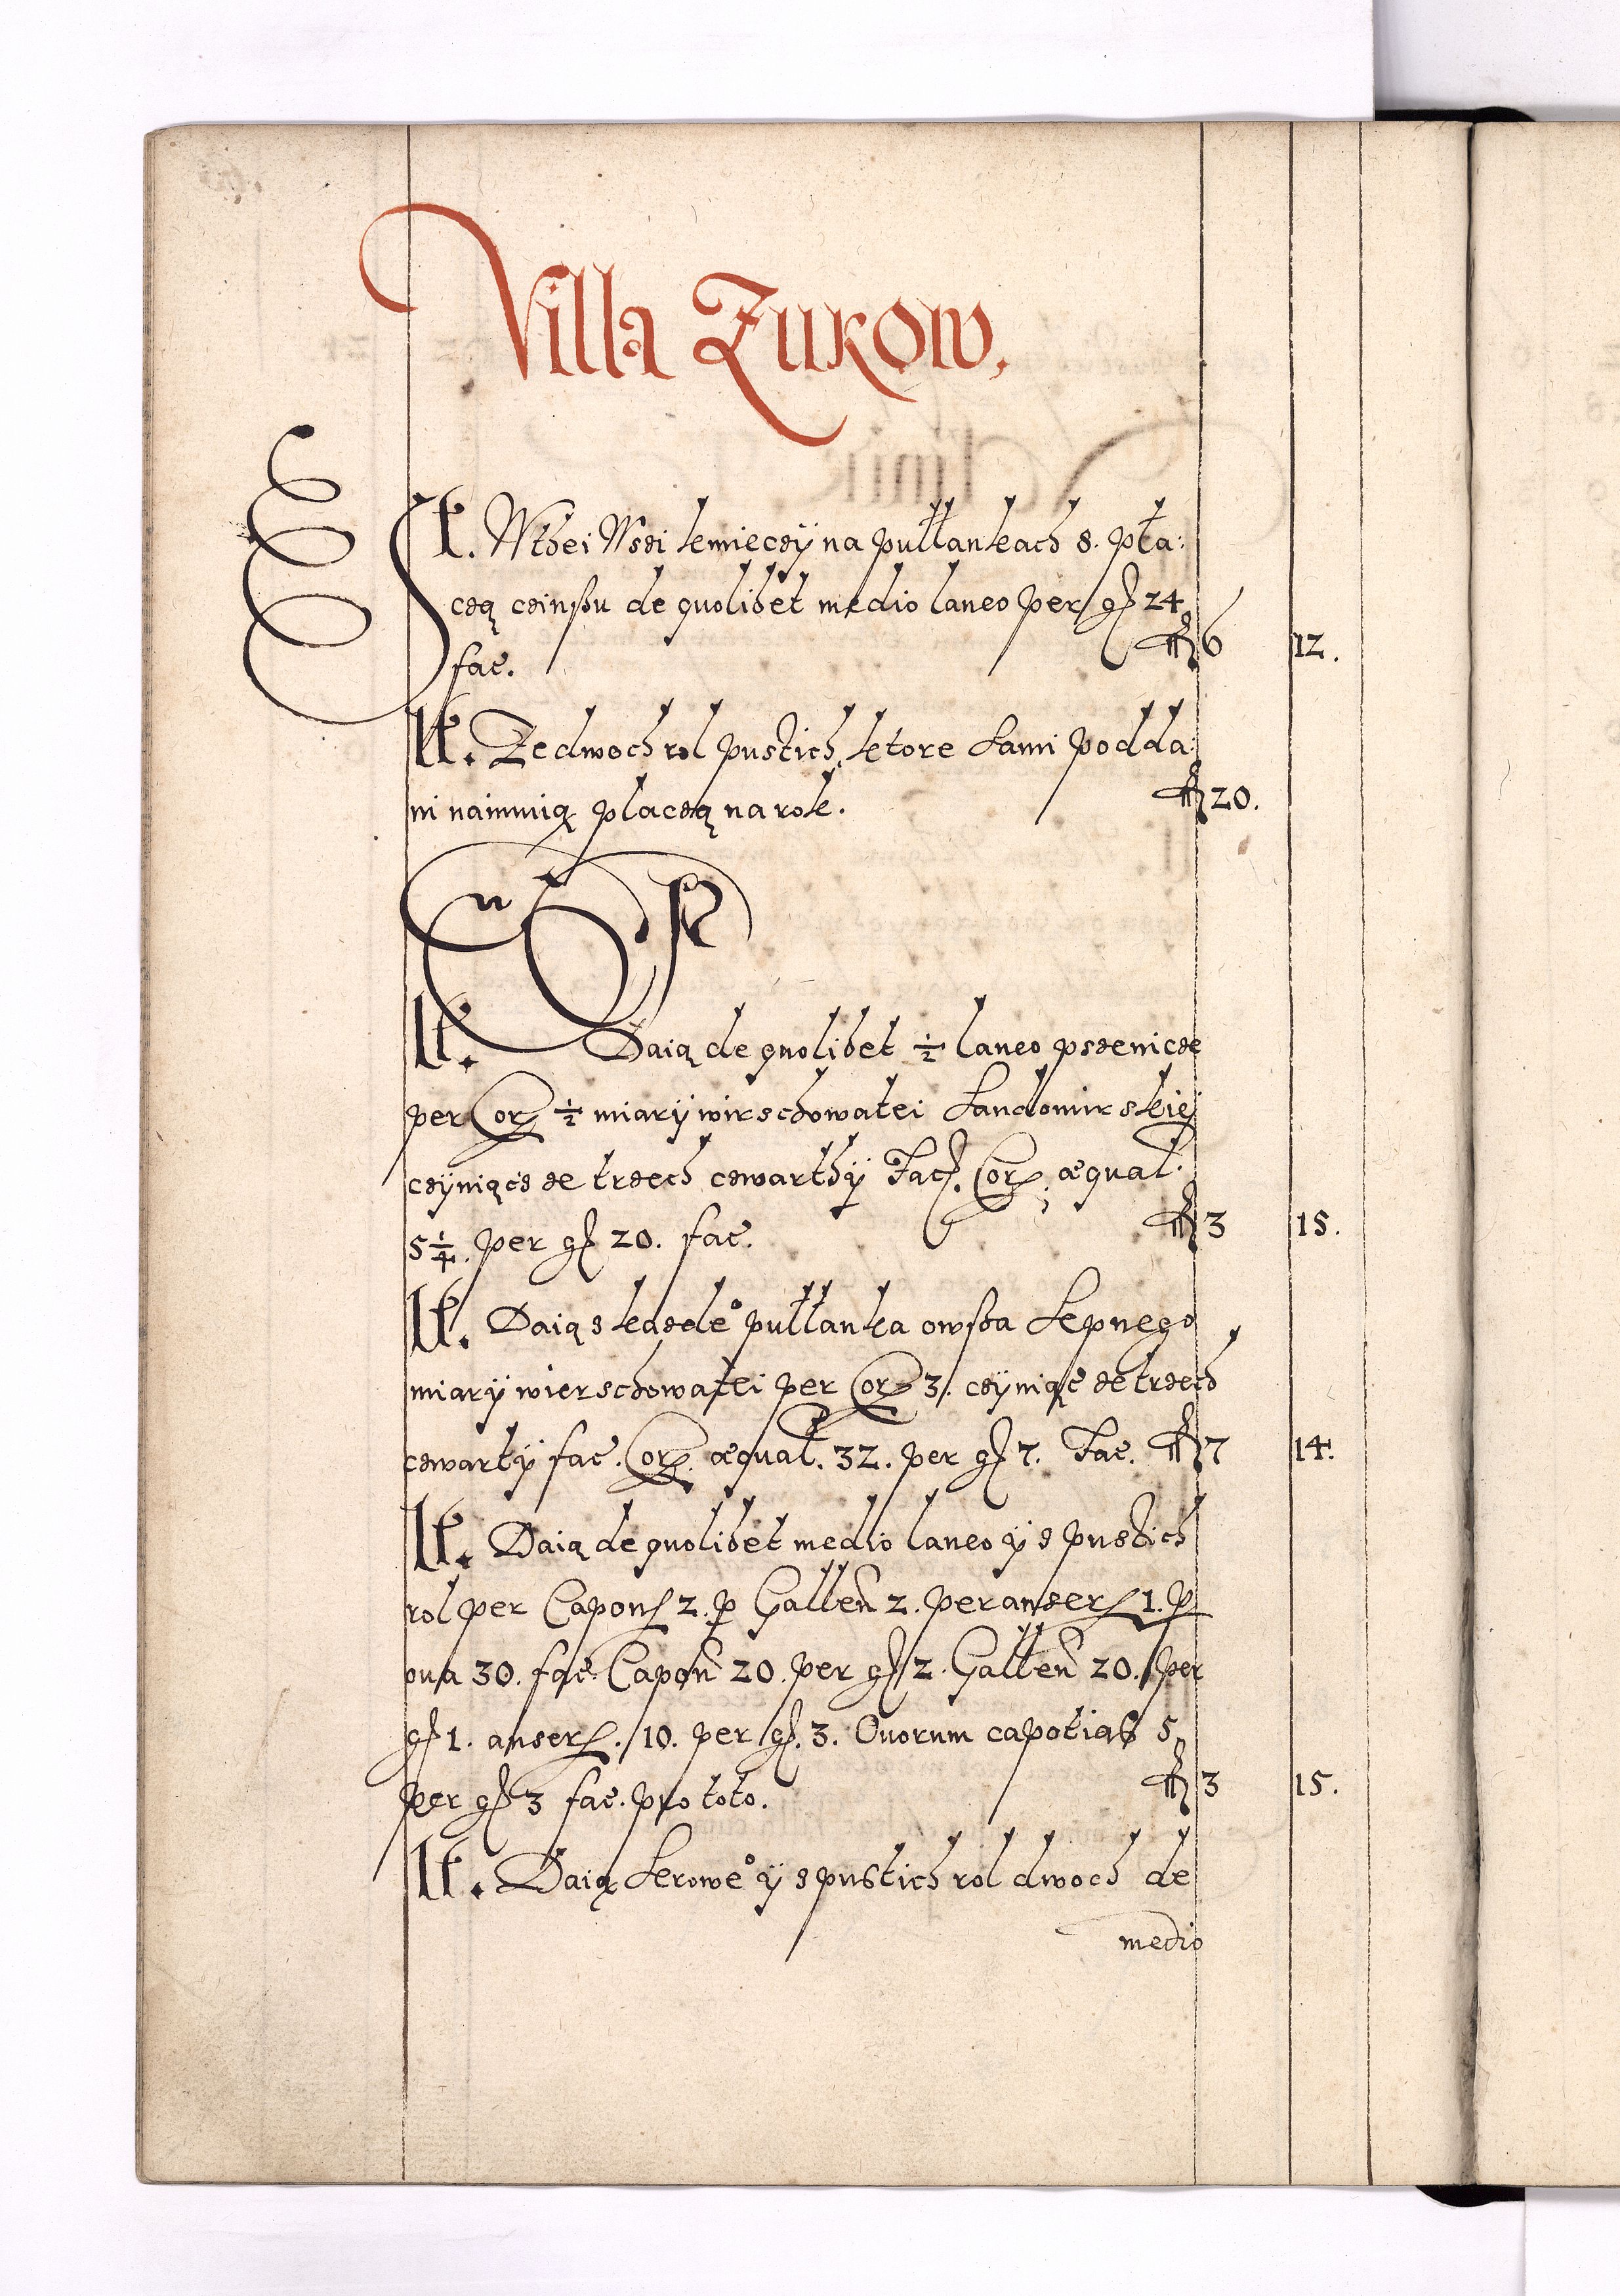 Villa Zukow,
It. W they Wsei kmieczÿ na pułłankach 8. pła:
czą czinsßu de quolibet medio laneo per gs 24
fac. fl 6 12.
It. Ze dwoch rol pustich, ktore sami podda:
ni naimuią płaczą na rok. fl 20.
It. Daią de quolibet ½ laneo pszenicze
per Cor. ½ miarÿ wirschowatei Sandomirskieÿ
czÿniącz ze trzech czwarthÿ Fac. Cor. æqual.
5¼. per gs 20. fac. fl 3 15.
It. Daią s kazde° pułłanka owsßa sepnego
miarÿ wierschowatei per Cor 3. czÿniąc ze trzech
czwartÿ fac. Cor. æqual. 32. per gs 7. Fac. fl 7 14.
It. Daią de quolibet medio laneo ÿ s pustich
rol per Capon 2. p Gallen 2. per anser 1. p
oua 30. fac. Capon 20. per gs 2. Gallen 20. per
gs 1. anser. 10. per gs. 3. Ouorum capotias 5,
per gs 3 fac. pro toto. fl 3 15.
It. Daią serowe° ÿ s pustich rol dwoch de
medio